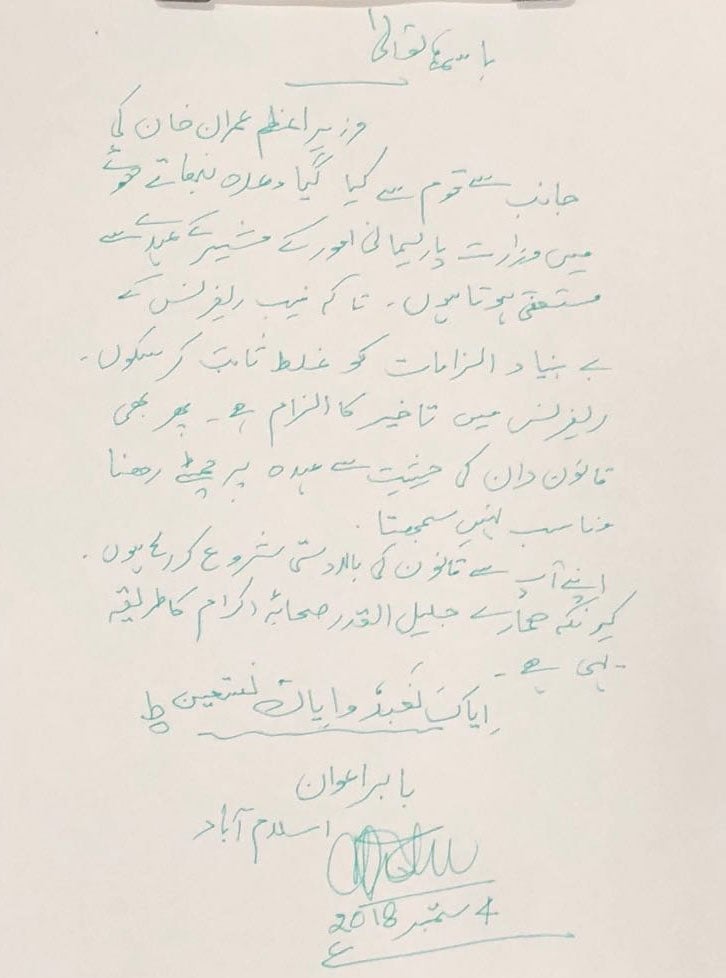 باسمہٖ تعالیٰ
وزیر اعظم عمران خان کی
جانب سے قوم سے کیا گیا وعدہ نبھاتے ھوئے
میں وزارت پارلیمانی امور کے مشیر کے عہدے سے
مستعفی ہوتا ہوں۔ تاکہ نیب ریفرنس کے
بے بنیاد الزامات کو غلط ثابت کر سکوں۔
ریفرنس میں تاخیر کا الزام ہے۔ پھر بھی
قانون دان کی حیثیت سے عہدہ پر چمٹے رھنا
مناسب نہیں سمجھتا۔
اپنے آپ سے قانون کی بالادستی شروع کر رہا ہوں۔
کیونکہ ھمارے جلیل القدر صحابہٴ اکرام کا طریقہ
یہی ہے۔
اِیاکَ نَعْبدُ وایاک نستعین ط
بابر اعوان
اسلام آباد
4 ستمبر 2018ء